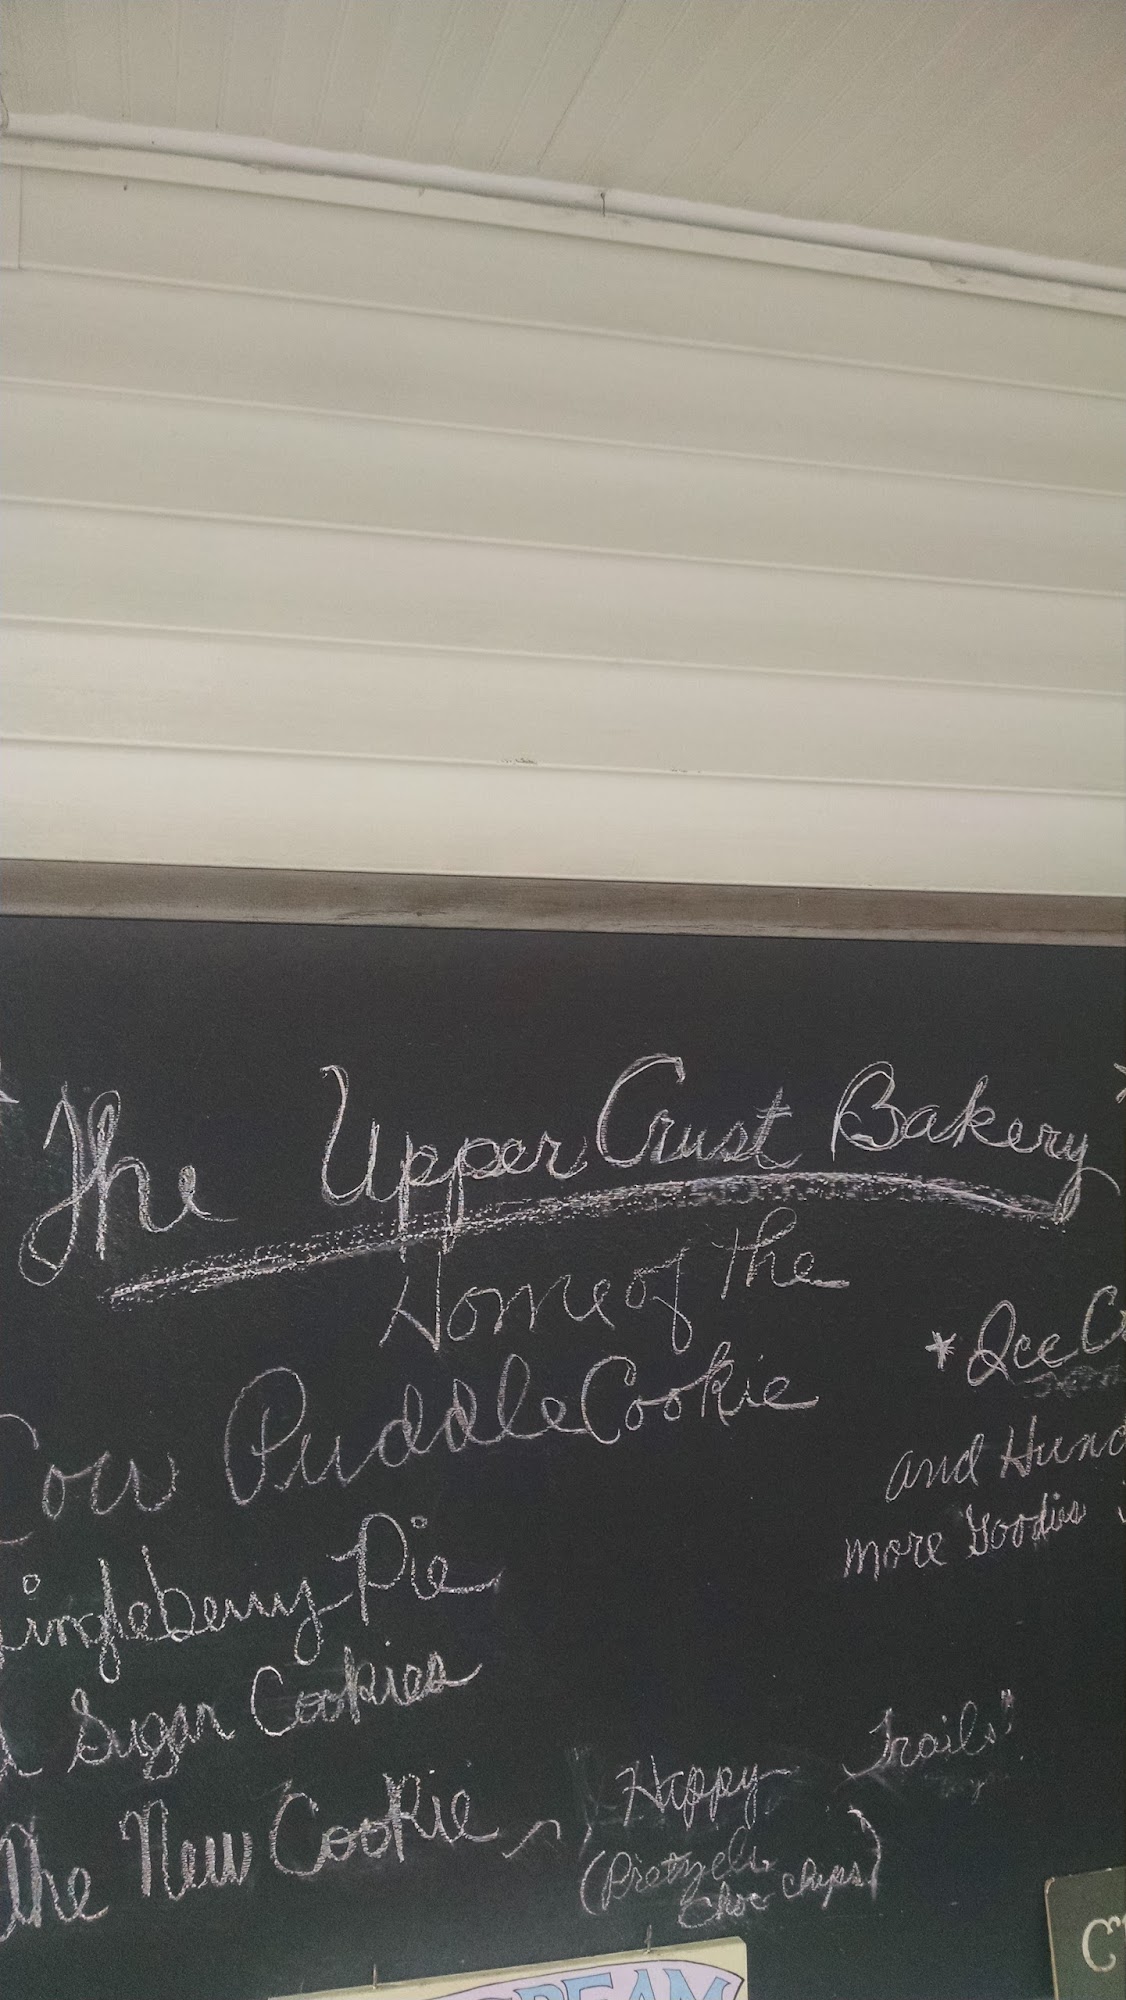 The Upper Crust Bakery
Home of the
Cow Puddle Cookie
* Ice C
and Hund
more Goodies
ingleberry Pie
Sugar Cookies
The New Cookie ~ Happy Trails"
(Pretzels
Choc chips)
CREAM
C